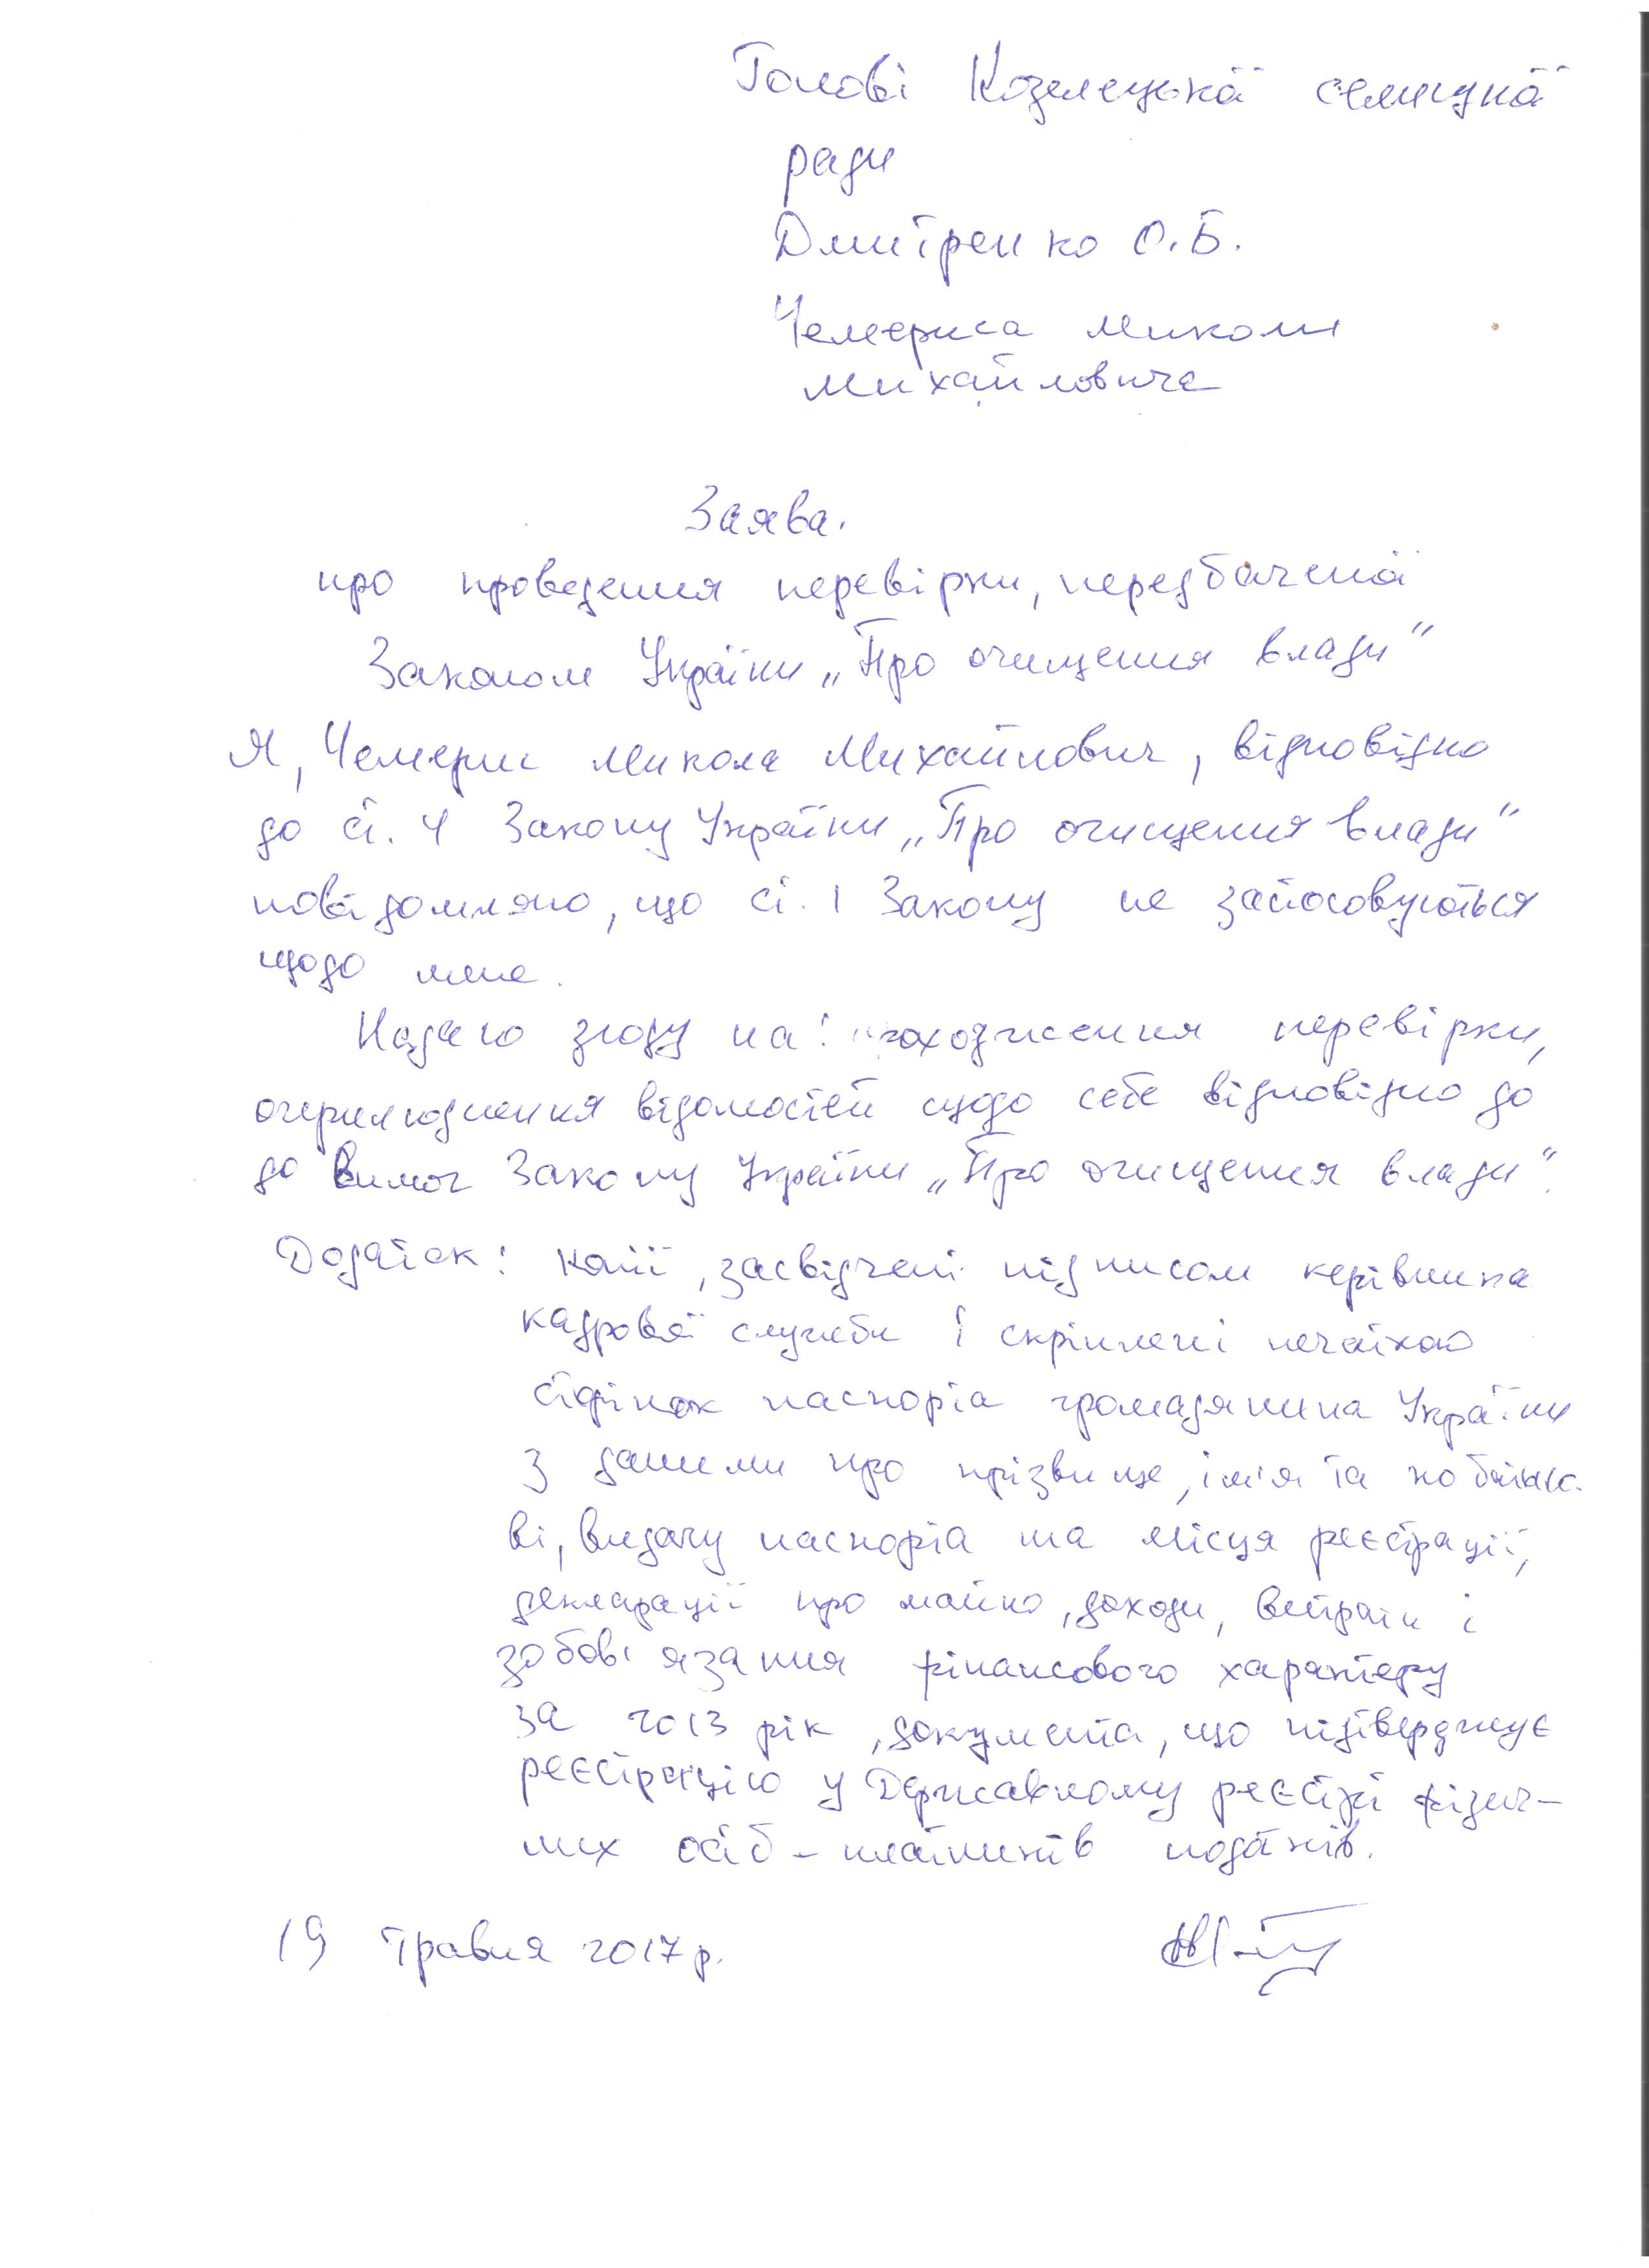 Голові Козелецької селищної
ради
Дмитренко О.Б.
Чемериса Миколи
Михайловича
Заява.
про проведення перевірки, передбаченої
Законом України „Про очищення влади"
Я, Чемерис Микола Михайлович, відповідно
до ст. 4 Закону України „Про очищення влади"
повідомляю, що ст. 1 Закону не застосовуються
щодо мене.
Надаю згоду на: проходження перевірки,
оприлюднення відомостей щодо себе відповідно до
до вимог Закону України „Про очищення влади".
Додаток: копії, засвідчені підписом керівника
кадрової служби і скріплені печаткою
сторінок паспорта громадянина України
з даними про прізвище, ім'я та по батько-
ві, видачу паспорта та місця реєстрації,
декларації про майно, доходи, витрати і
зобов'язання фінансового характеру
за 2013 рік, документа, що підтверджує
реєстрацію у Державному реєстрі фізич-
них осіб - платників податків.
19 травня 2017 р.